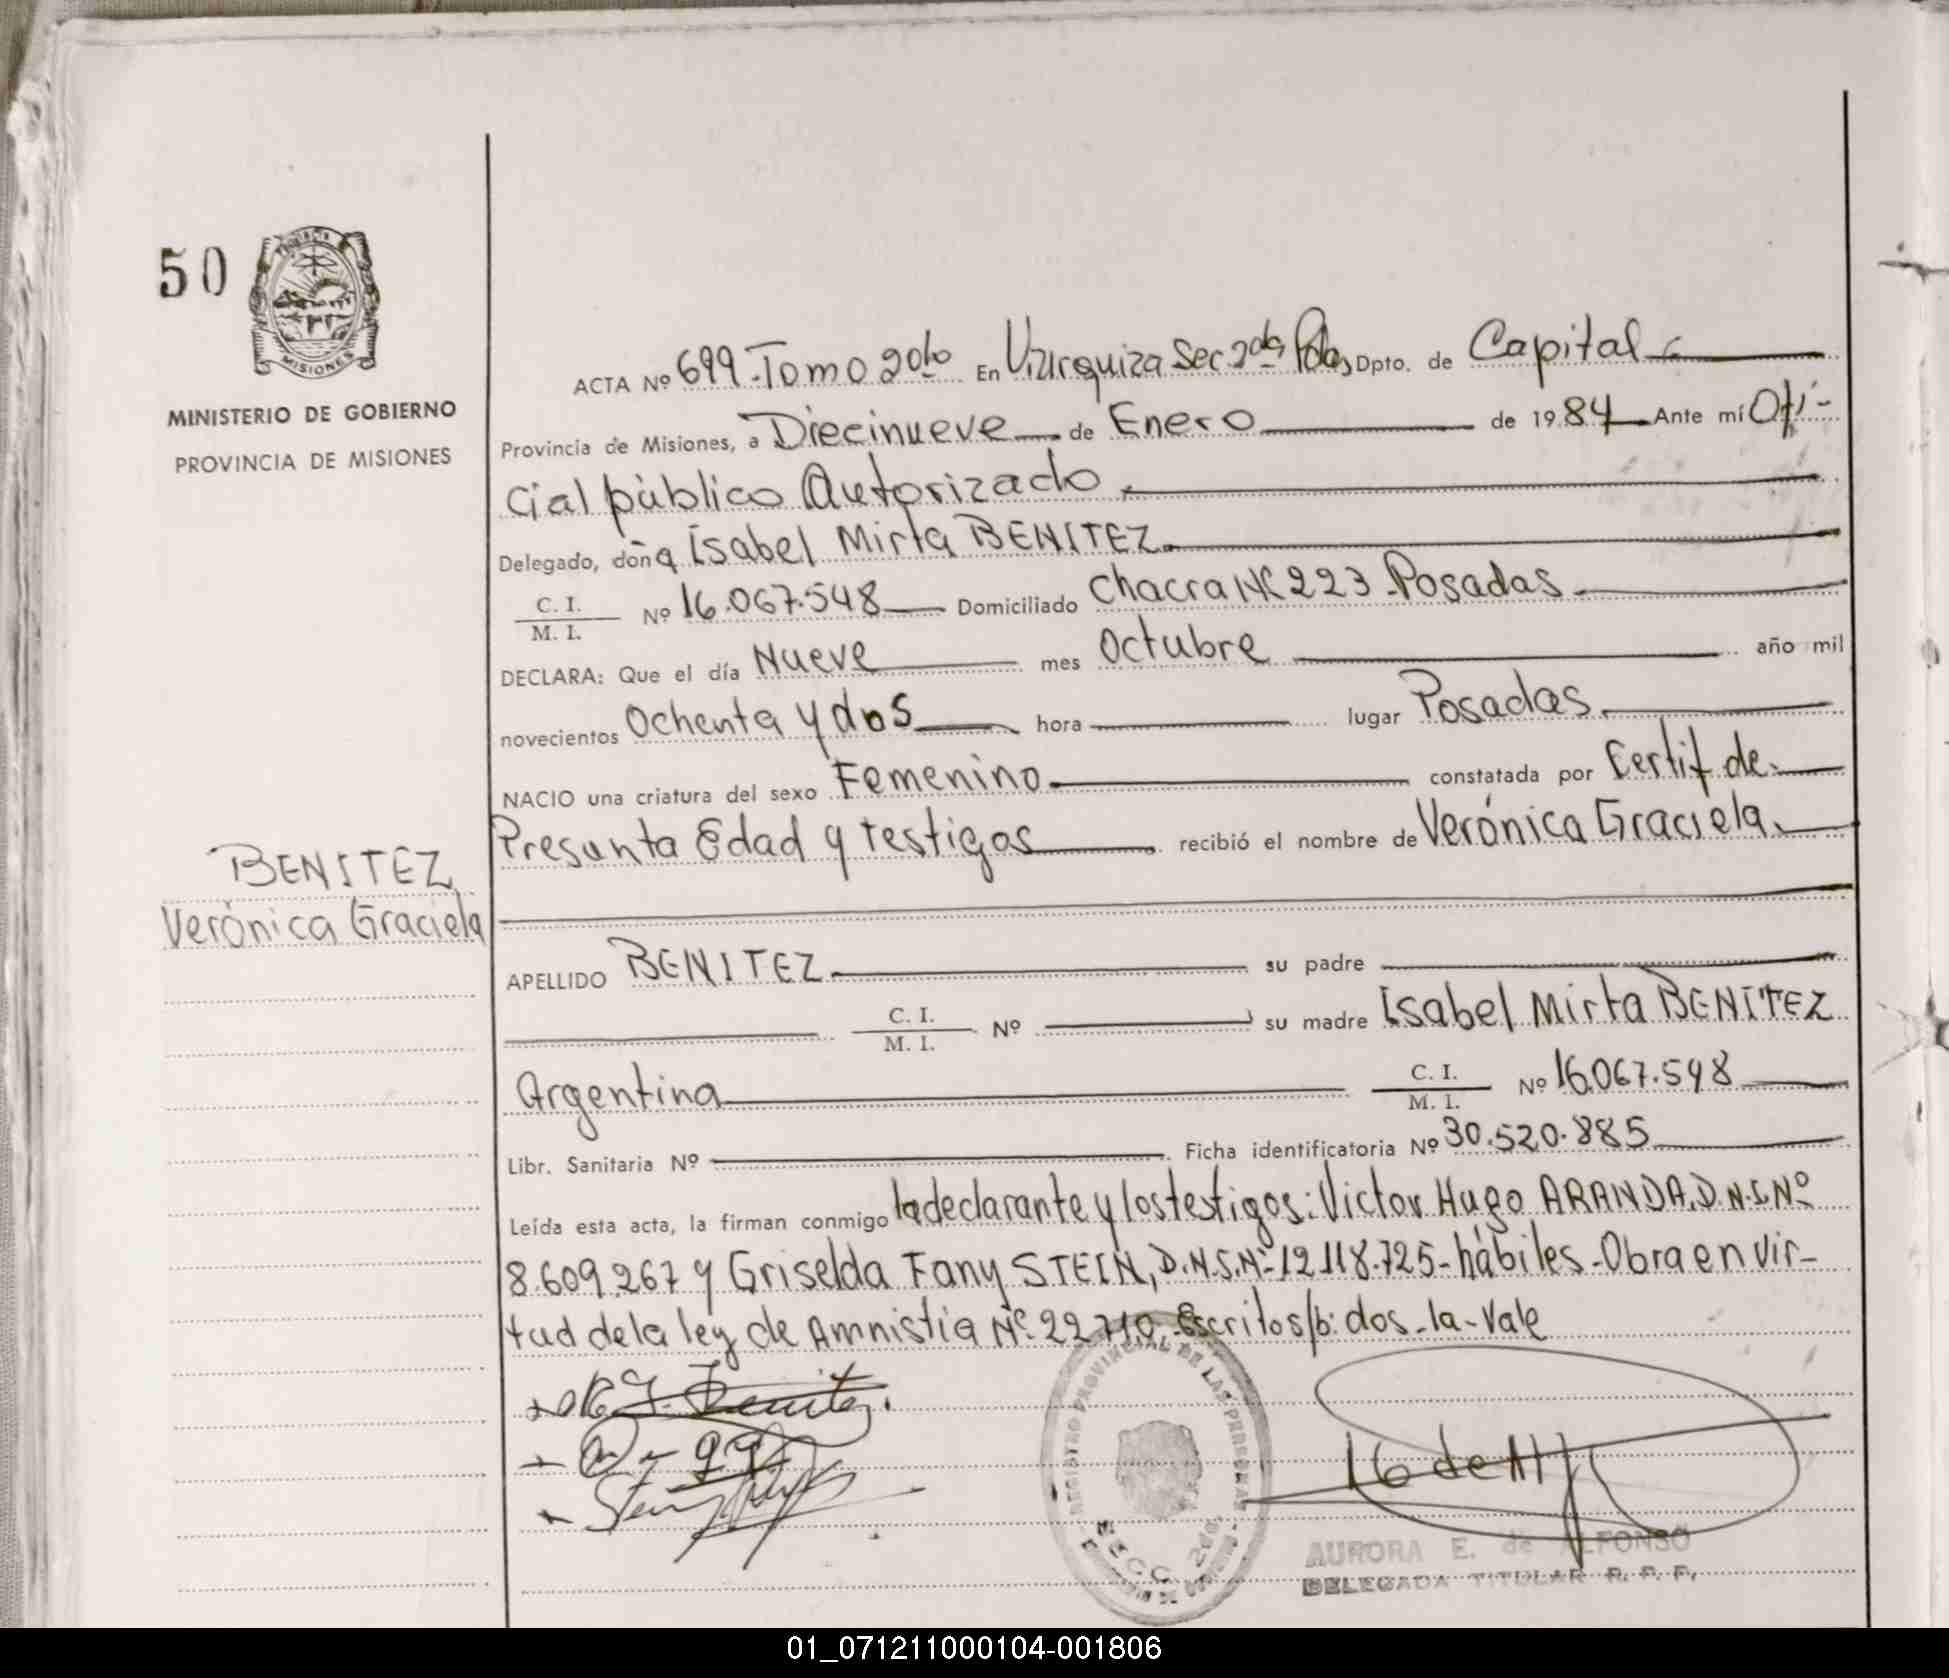 50
PROVINCIA
MISIONES
MINISTERIO DE GOBIERNO
PROVINCIA DE MISIONES
ACTA Nº 699-Tomo 2do En V.Urquiza Sec. 2da, Pdas Dpto. de Capital
Provincia de Misiones, a Diecinueve de Enero de 1984 Ante mí Ofi-
cial público Autorizado
Delegado, doña Isabel Mirta BENITEZ.
C. I.
M. I. Nº 16.067.548 Domiciliado Chacra Nº 223-Posadas
DECLARA: Que el día Nueve mes Octubre año mil
novecientos Ochenta y dos hora lugar Posadas
NACIO una criatura del sexo Femenino constatada por Certif de.
Presunta Edad y testigos recibió el nombre de Verónica Graciela.
BENITEZ
Verónica Graciela
APELLIDO BENITEZ su padre
C. I.
M. I. Nº su madre Isabel Mirta BENITEZ
Argentina C. I.
M. I. Nº 16.067.548
Libr. Sanitaria Nº Ficha identificatoria Nº 30.520.885
Leída esta acta, la firman conmigo la declarante y los testigos: Victor Hugo ARANDA, D.N.I. Nº
8.609.267 y Griselda Fany STEIN, D.N.I. Nº 12.118.725-hábiles-Obra en vir-
tud de la ley de Amnistia Nº 22.710, Escritos/b: dos-la-Vale
Benitez.
REGISTRO PROVINCIAL DE LAS PERSONAS
AURORA E. de ALFONSO
DELEGADA TITULAR R. P. P.
01_071211000104-001806